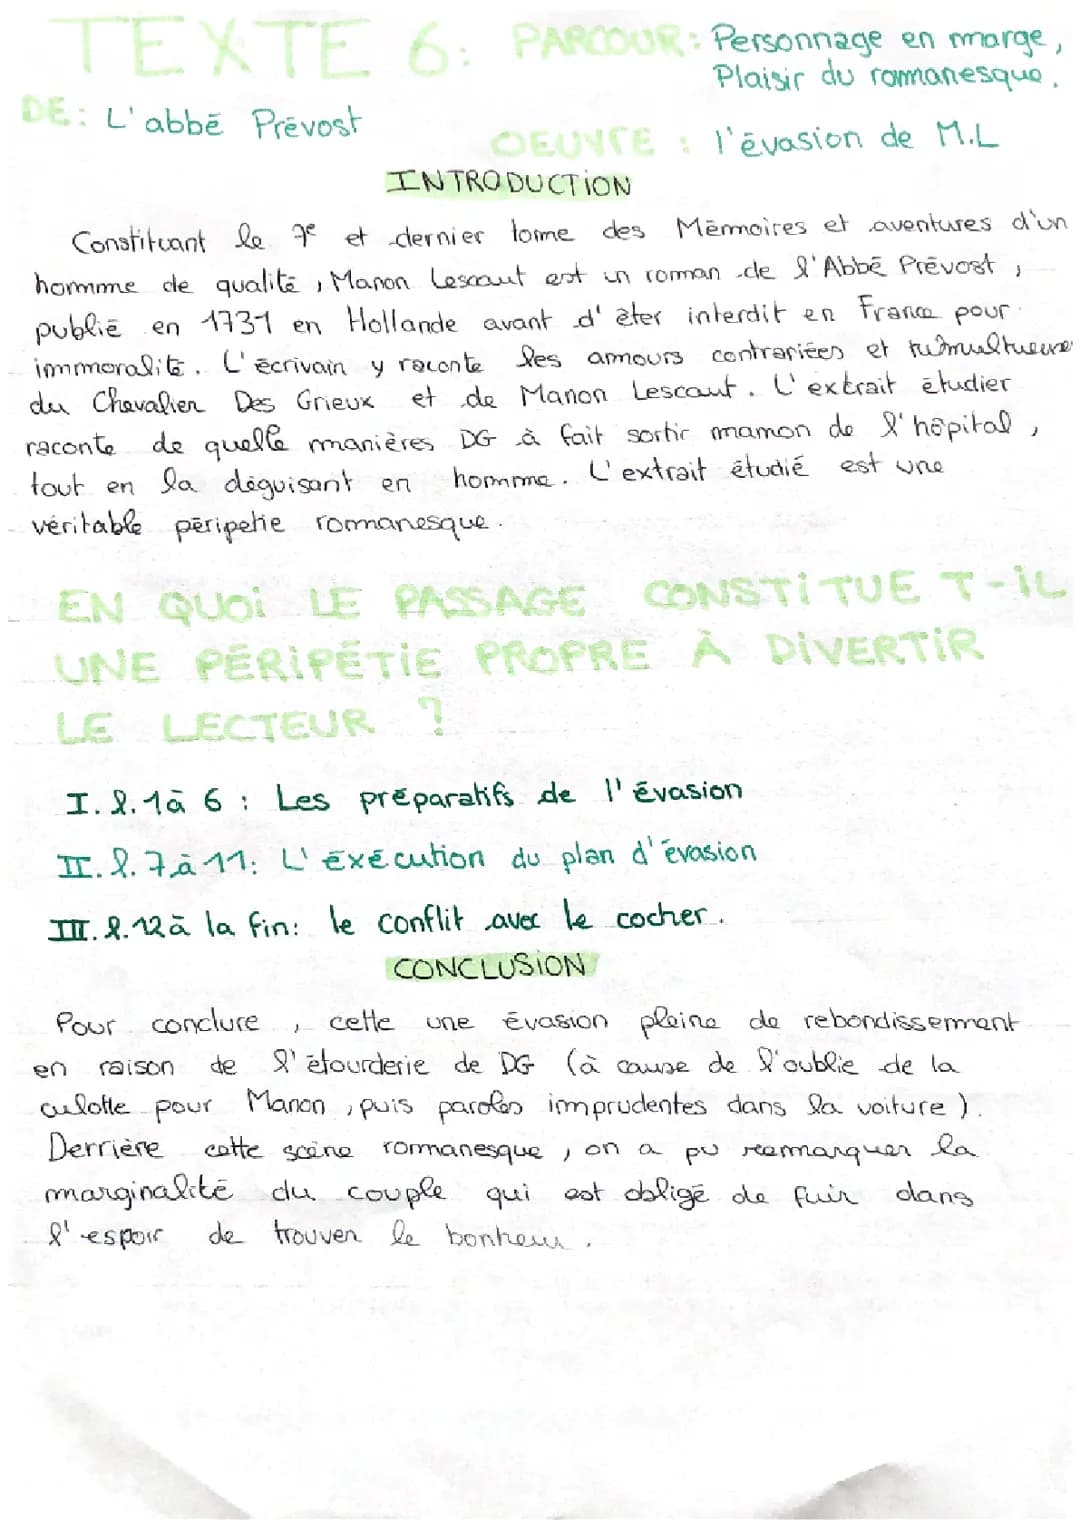 TEXTE 6: PARCOUR: Personnage en marge,
Plaisir du romanesque.
DE: L'abbé Prévost
OEUVRE : l'évasion de M.L
INTRODUCTION
Constituant le 7e et dernier tome des Mémoires et aventures d'un
homme de qualité, Manon Lescaut est un roman de l'Abbé Prévost,
publié en 1731 en Hollande avant d'êter interdit en France pour
immoralité. L'écrivain y raconte les amours contrariées et tumultueuse
du Chevalier Des Grieux et de Manon Lescaut. L'extrait étudier
raconte de quelle manières DG à fait sortir mamon de l'hôpital,
tout en la déguisant en homme. L'extrait étudié est une
véritable péripetie romanesque.
EN QUOi LE PASSAGE CONSTiTUE T-iL
UNE PÉRiPÉTiE PROPRE À DiVERTiR
LE LECTEUR ?
I. l. 1à 6 : Les préparatifs de l'évasion
II. l. 7à 11: L'éxécution du plan d'évasion
III. l. 12à la fin: le conflit avec le cocher.
CONCLUSiON
Pour conclure, cette une évasion pleine de rebondissement
en raison de l'étourderie de DG (à cause de l'oublie de la
culotte pour Manon, puis paroles imprudentes dans la voiture).
Derrière cette scène romanesque, on a pu reemarquer la
marginalité du couple qui est obligé de fuir dans
l'espoir de trouver le bonheur.